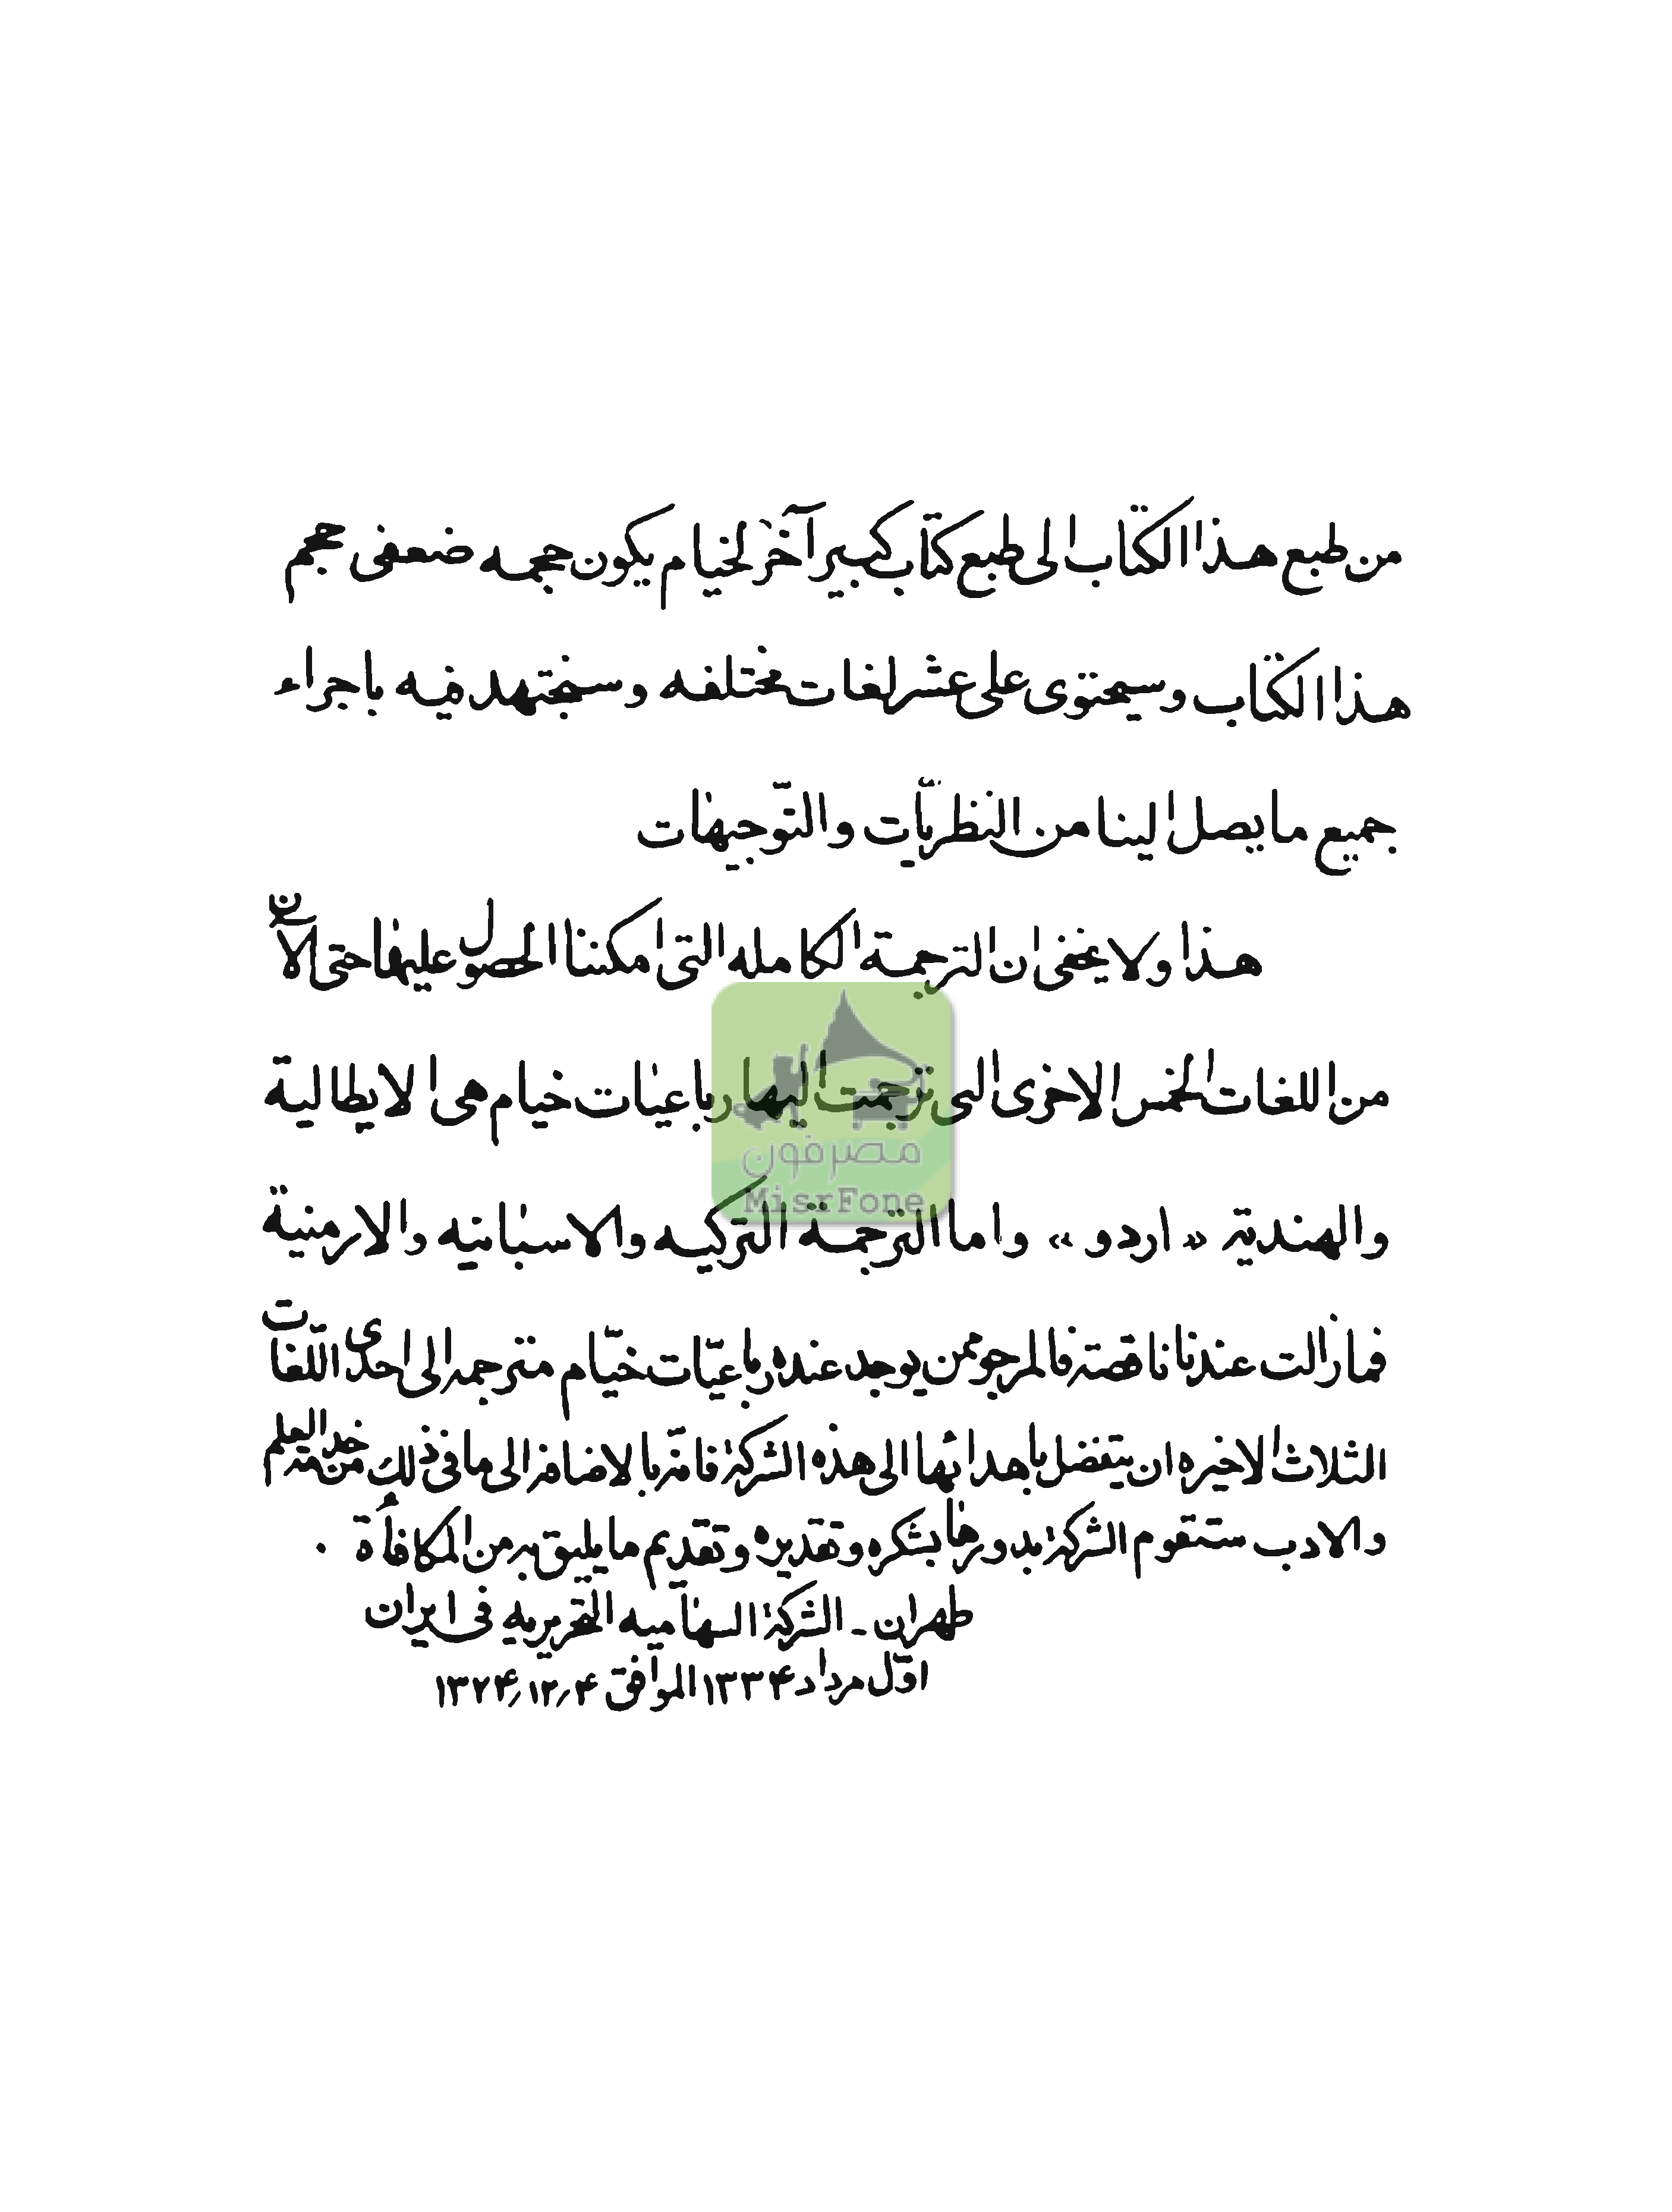 من طبع هذا الكتاب الى طبع كتاب كبير آخر لخيام يكون حجمه ضعفى حجم
هذا الكتاب وسيحتوى على عشر لغات مختلفه وسنجتهد فيه باجراء
جميع ما يصل الينا من النظريّات والتّوجيهات
هذا ولا يخفى ان الترجمة الكامله التى امكننا الحصول عليها حتى الآن
من اللغات الخمس الاخرى التى ترجمت اليها رباعيات خيام هى الايطالية
مصرفون
MisrFone
والهندية «اردو» واما الترجمة التركيه والاسبانيه والارمنية
فمازالت عندنا ناقصة فالمرجو ممن يوجد عنده رباعيّات خيّام مترجمه الى احدى اللّغات
الثلاث الاخيره ان يتفضل باهدائها الى هذه الشركة فانّه بالاضافه الى ما فى ذلك من خدمة العلم
والادب ستقوم الشركة بدورها بشكره وتقديره وتقديم ما يليق به من المكافأة .
طهران - الشركة السهاميه التحريريه فى ايران
اوّل مرداد ۱۳۳۴ الموافق ۴؍۱۲؍۱۳۷۴